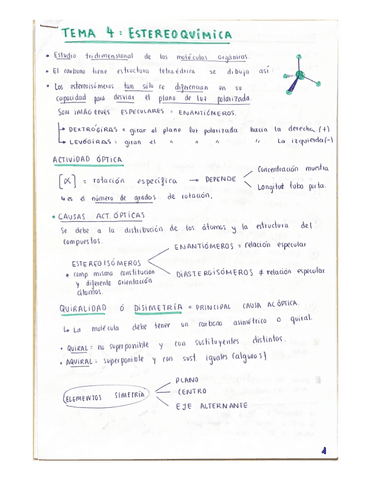 TEMA 4: ESTEREOQUÍMICA
• Estudio tridimensional de las moléculas orgánicas.
• El carbono tiene estructura tetraédrica se dibuja así:
• Los estereoisómeros tan sólo se diferencian en su
capacidad para desviar el plano de luz polarizada.
SON IMÁGENES ESPECULARES = ENANTIÓMEROS.
→ DEXTRÓGIRAS = giran el plano luz polarizada hacia la derecha (+)
→ LEVÓGIRAS = giran el " " " " La izquierda (-)
ACTIVIDAD ÓPTICA
[α] = rotación específica → DEPENDE
Concentración muestra
Longitud tubo porta.
↳ es el número de grados de rotación.
• CAUSAS ACT. ÓPTICAS
Se debe a la distribución de los átomos y la estructura del
compuestos.
ESTEREOISÓMEROS
• comp misma constitución
y diferente orientación
átomos.
ENANTIÓMEROS = relación especular
DIASTEROISÓMEROS ≠ relación especular
QUIRALIDAD Ó DISIMETRÍA = PRINCIPAL CAUSA AC.ÓPTICA.
↳ La molécula debe tener un carbono asimétrico o quiral.
• QUIRAL = no superponible y con sustituyentes distintos.
• AQUIRAL = superponible y con sust. iguales (algunos)
ELEMENTOS SIMETRÍA
PLANO
CENTRO
EJE ALTERNANTE
1